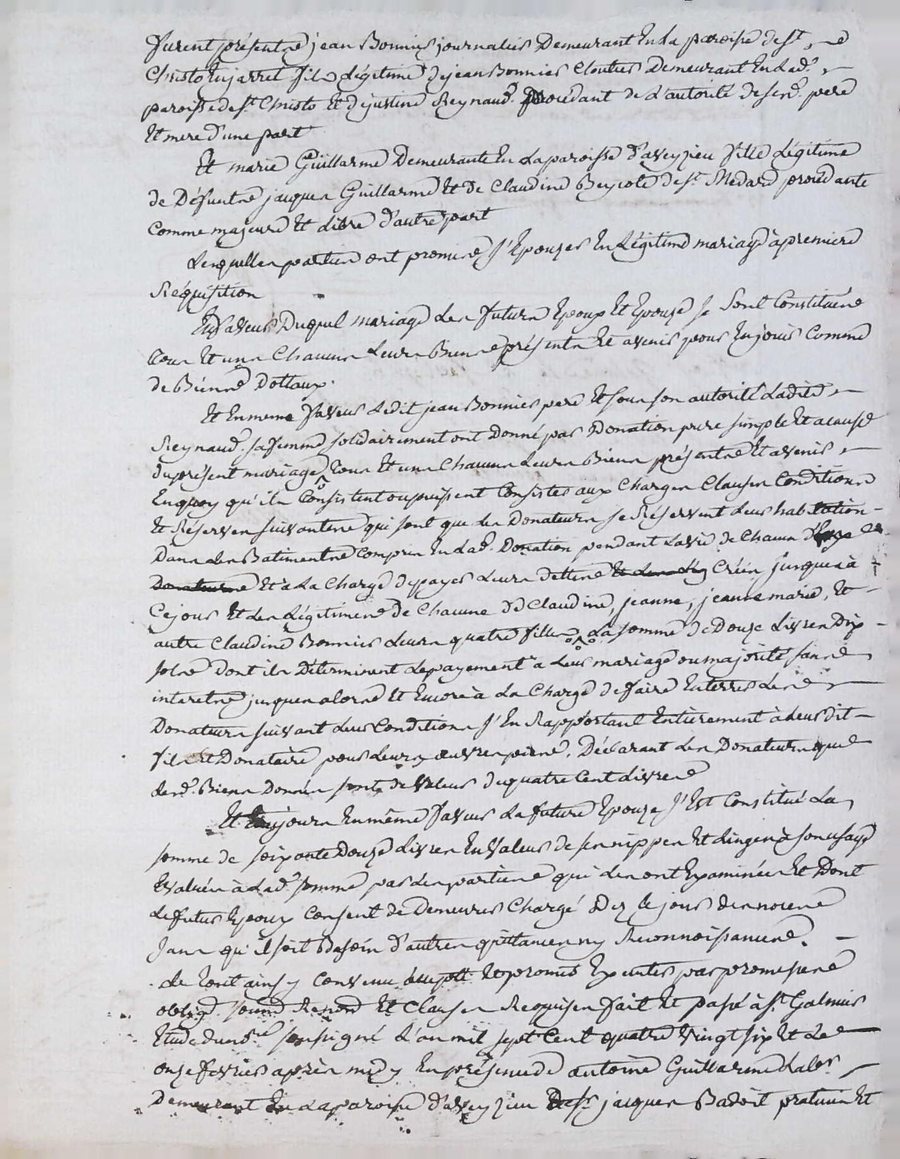 furent présents jean Bonnier journalier Demeurant En la paroisse de St
Christo En jarret fils Légitime de jean Bonnier Cloutier Demeurant En lad.
paroisse de St Christo et de justine Reynaud procédant de L'autorité de sesd. pere
Et mere d'une part
Et marie Guillarme Demeurante En La paroisse d'aveyzieu fille Légitime
de Défunts jaques Guillarme Et de Claudine de St Medard procédante
Comme majeure Et Libre d'autre part
Lesquelles parties ont promis s'Epouser En Légitime mariage à premiere
Réquisition
En faveur Duquel mariage Les futurs Epoux Et Epouse se sont Constitués
tous Et uns Chacuns Leurs Biens présents Et avenir pour En jouir Comme
de Biens Dottaux.
Et En meme faveur Ledit jean Bonnier pere Et sous son autorité Ladite
Reynaud sa femme solidairement ont donné par Donation pure simple Et a cause
du présent mariage tous Et uns Chacuns Leurs Biens présents Et avenir
En quoy qu'ils Consistent ou puissent Consister aux Charges Clauses Conditions
Et Réserves suivantes qui sont que Les Donateurs se Réservent Leur habitation
Dans Les Batiments Compris En Lad. Donation pendant La vie de Chacun d'
Donateurs Et à La Charge de payer Leurs dettes Créés jusques à
Ce jour Et Les Légitimes de Chacune de Claudine, jeanne, jeanne marie, Et
autre Claudine Bonnier Leurs quatre filles La somme de Douze Livres Dix
sols dont ils Déterminent Le payement à Leur mariage ou majorité sans
interets jusques alors Et Encore à La Charge de faire Enterrer Les
Donateurs suivant Leur Condition s'En Rapportant Entierement à Leur dit
fils Et Donataire pour Leurs œuvres pies, Déclarant Les Donateurs que
Lesd. Biens Donnés sont de valeur de quatre Cent Livres
Et toujours En même faveur La future Epouse s'Est Constitué La
somme de soixante Douze Livres En valeur de ses nippes Et Linges à son usage
Evalués à Lad. somme par Les parties qui Les ont Examinés Et Dont
Le futur Epoux Consent de Demeurer Chargé Dez Le jour des noces
sans qu'il soit Besoin d'autres quittances ny Reconnoissances.
Le tout ainsy Convenu accepté Et promis Exécuter par promesses
obligon. soumd. Renond. Et Clauses Requises fait Et passé à St Galmier
Etude du nore. soussigné L'an mil sept Cent quatre vingt six Et Le
onze fevrier après midy En présence de antoine Guillarme Labr.
Demeurant En La paroisse d'aveyzieu Sr jacques Badoit praticien Et